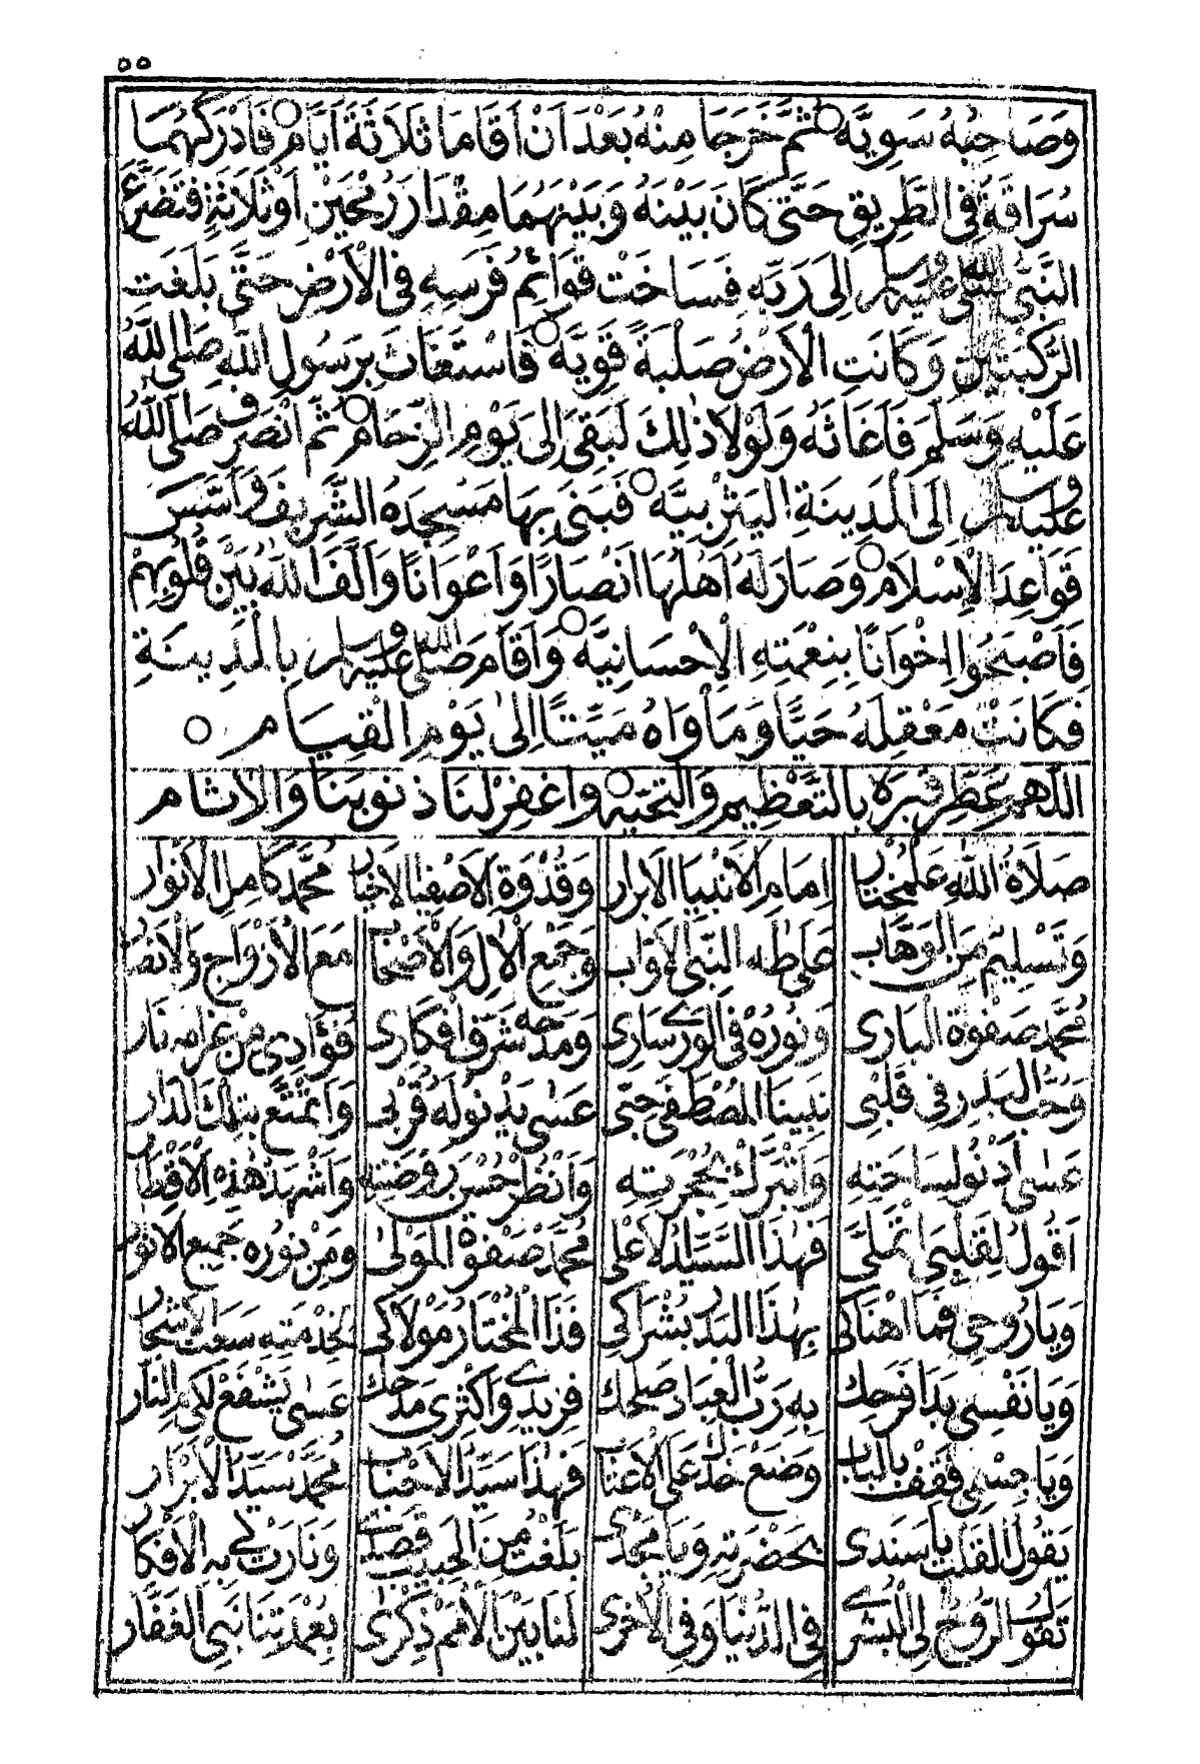 ٥٥
وَصَاحِبُهُ سَوِيَّه ۝ ثُمَّ خَرَجَا مِنْهُ بَعْدَ اَنْ اَقَامَا ثَلَاثَةَ اَيَّامٍ ۝ فَاَدْرَكَهُمَا
سُرَاقَةُ فِي الطَّرِيقِ حَتّٰى كَانَ بَيْنَهُ وَبَيْنَهُمَا مِقْدَارَ رُمْحَيْنِ اَوْثَلَاثَةٍ فَتَضَرَّعَ
النَّبِىُّ صلى الله عليه وسلم اِلٰى رَبِّهِ فَسَاخَتْ قَوَائِمُ فَرَسِهِ فِى الْاَرْضِ حَتّٰى بَلَغَتِ
الرُّكْبَتَيْنِ وَكَانَتِ الْاَرْضُ صَلْبَةً قَوِيَّه ۝ فَاسْتَغَاثَ بِرَسُولِ اللهِ صَلَّى اللهُ
عَلَيْهِ وَسَلَّمَ فَاَغَاثَهُ وَلَوْلَا ذٰلِكَ لَبَقِىَ اِلٰى يَوْمِ الزِّحَامِ ۝ ثُمَّ انْصَرَفَ صَلَّى اللهُ
عَلَيْهِ وسلم اِلَى الْمَدِينَةِ الْيَثْرِبِيَّه ۝ فَبَنٰى بِهَا مَسْجِدَهُ الشَّرِيفَ وَاَسَّسَ
قَوَاعِدَ الْاِسْلَامِ ۝ وَصَارَ لَهُ اَهْلُهَا اَنْصَارًا وَاَعْوَانًا وَاَلَّفَ اللهُ بَيْنَ قُلُوبِهِمْ
فَاَصْبَحُوا اِخْوَانًا بِنِعْمَتِهِ الْاِحْسَانِيَّه ۝ وَاَقَامَ صَلَّى الله عَلَيْهِ وسلم بِالْمَدِينَةِ
فَكَانَتْ مَعْقِلَهُ حَيًّا وَمَأْوَاهُ مَيِّتًا اِلٰى يَوْمِ الْقِيَامِ ۝
اللّٰهُمَّ عَطِّرْ قَبْرَهُ بِالتَّعْظِيمِ وَالتَّحِيَّه ۝ وَاغْفِرْ لَنَا ذُنُوبَنَا وَالْاٰثَامِ
صَلَاةُ اللهِ عَلٰى مُخْتَارْ اِمَامِ الْاَنْبِيَا الْاَبْرَارْ وَقُدْوَةِ الْاَصْفِيَا الْاَخْيَارْ مُحَمَّدْ كَامِلِ الْاَنْوَارْ
وَتَسْلِيمٌ مِنَ الْوَهَّابْ عَلٰى طٰهَ النَّبِىِّ الْاَوَّابْ وَجَمْعِ الْاٰلِ وَالْاَصْحَابْ مَعَ الْاَزْوَاجِ وَالْاَنْصَارْ
مُحَمَّدْ صَفْوَةُ الْبَارِى وَنُورُهْ فِى الْوَرٰى سَارِى وَمَدْحُهْ شَرَّفَ افْكَارِى فُؤَادِى مِنْ غَرَامِهْ نَارْ
وَحُبُّ الْبَدْرِ فِى قَلْبِى نَبِيِّنَا الْمُصْطَفٰى حِبِّى عَسٰى يَدْنُو لَهُ قُرْبِى وَاَتَمَتَّعْ بِتِلْكَ الدَّارْ
عَسٰى اَدْنُو لِسَاحَتِهِ وَاَتْبَرَّكْ بِحُجْرَتِهِ وَاَنْظُرْ حُسْنَ رَوْضَتِهِ وَاَشْهَدْ هٰذِهِ الْاَقْطَارْ
اَقُولُ لِقَلْبِىَ اتْمَلَّى فَهٰذَا السَّيِّدُ الْاَعْلٰى مُحَمَّدْ صَفْوَةُ الْمَوْلٰى وَمِنْ نُورِهِ جَمِيعُ الْاَنْوَارْ
وَيَا رُوحِى فَمَا اهْنَاكِى بِهٰذَا الْبَدْرِ بُشْرَاكِى فَذَا الْمُخْتَارُ مَوْلَاكِى لِخِدْمَتِهِ سَعَتِ الْاَشْجَارْ
وَيَا نَفْسِى بَدَا فَرَحِكْ بِهِ رَبُّ الْعِبَادِ صَلَحِكْ فَزِيدِى وَاَكْثِرِى مَدْحِكْ عَسٰى يَشْفَعْ لَكِى مِ النَّارْ
وَيَا جِسْمِى فَقِفْ بِالْبَابْ وَضَعْ خَدَّكْ عَلَى الْاَعْتَابْ فَهٰذَا سَيِّدُ الْاَحْبَابْ مُحَمَّدْ سَيِّدُ الْاَبْرَارْ
يَقُولُ الْقَلْبُ يَا سَنَدِى بِحَضْرَتِهِ وَيَا مَجْدِى بَلَغْتُ مِنَ الْحَبِيبِ قَصْدِى وَنَارَتْ لِى بِهِ الْاَفْكَارْ
تَقُولُ الرُّوحُ لِى الْبُشْرٰى فِى الدُّنْيَا وَفِى الْاُخْرٰى لَنَا بَيْنَ الْاُمَمْ ذِكْرٰى بِعُمْدَتِنَا نَبِى الْغَفَّارْ